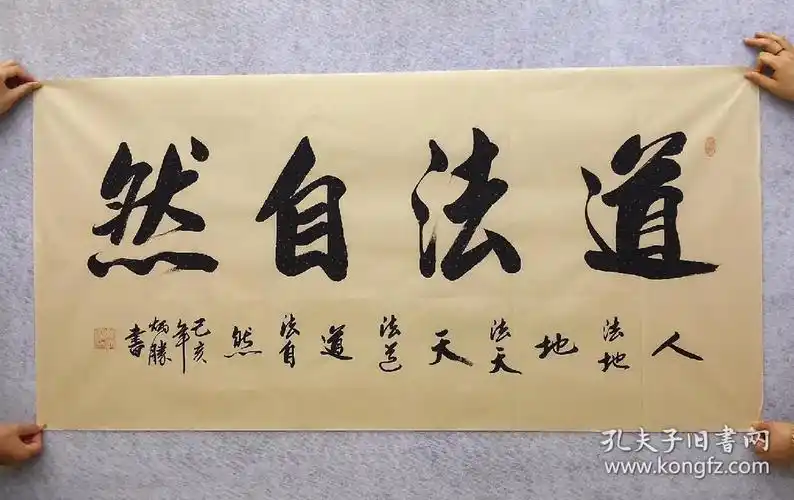 道法自然
人法地地法天天法道道法自然
己亥年炳勝書
孔夫子旧書网
www.kongfz.com